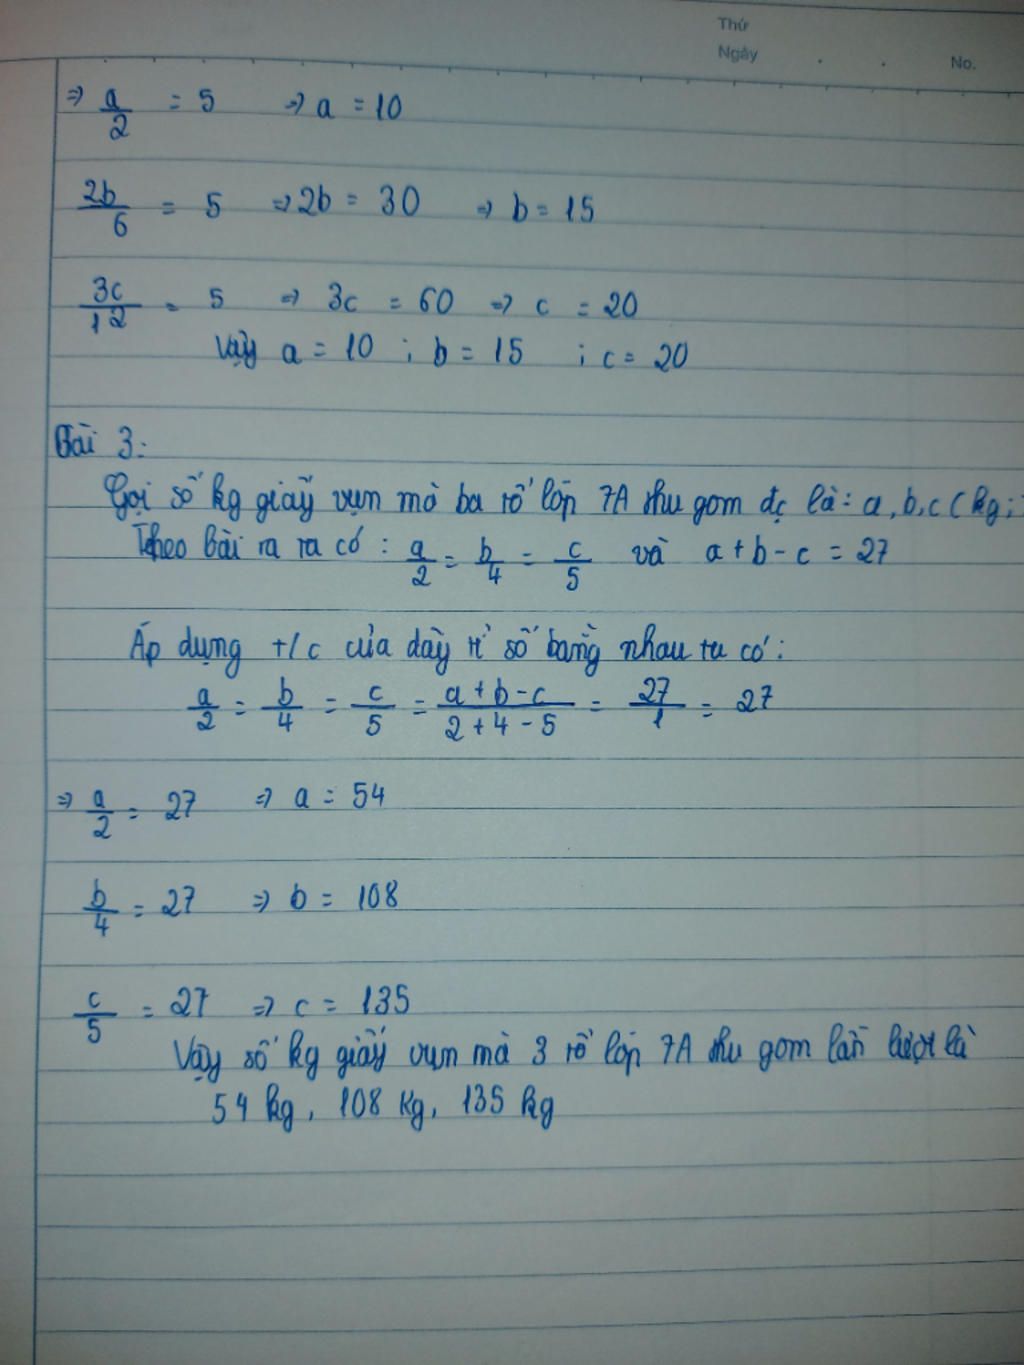 Thứ
Ngày
No.
⇒ a/2 = 5 ⇒ a = 10
2b/6 = 5 ⇒ 2b = 30 ⇒ b = 15
3c/12 = 5 ⇒ 3c = 60 ⇒ c = 20
Vậy a = 10 ; b = 15 ; c = 20
Bài 3:
Gọi số kg giấy vụn mà ba tổ lớp 7A thu gom đc là: a, b, c (kg;
Theo bài ra ta có: a/2 = b/4 = c/5 và a + b - c = 27
Áp dụng t/c của dãy tỉ số bằng nhau ta có:
a/2 = b/4 = c/5 = a + b - c/2 + 4 - 5 = 27/1 = 27
⇒ a/2 = 27 ⇒ a = 54
b/4 = 27 ⇒ b = 108
c/5 = 27 ⇒ c = 135
Vậy số kg giấy vụn mà 3 tổ lớp 7A thu gom lần lượt là
54 kg, 108 kg, 135 kg